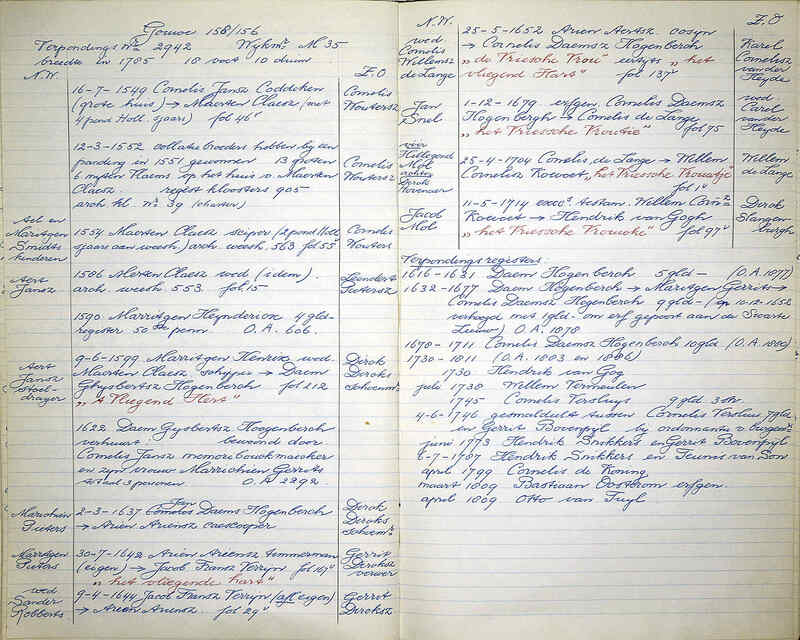 Gouwe 158/156
Terpondings Nr. 2942 Wyknr. M 35
breedte in 1785 18 voet 10 duim
N.W. Z.O
16-7-1549 Cornelis Jansz Coddeken
(grote huis) → Maerten Claesz (met
4 pond Holl. sjaars) fol 46v
Cornelis
Woutersz
12-3-1552 collatiebroeders hebben bij een
panding in 1551 gewonnen 13 groten
6 myten Vlaems op het huis v. Maerten
Claesz. regist kloosters 905
arch kl. Nr. 39 (charters)
Cornelis
Woutersz
Ael en
Maritgen
Smidts
kinderen
1554 Maerten Claesz sciper (2 pond Holl
sjaars aan weesh) arch. weesh. 563 fol 55
Cornelis
Wouters
Aert
Jansz
1586 Merten Claesz wed (idem).
arch. weesh 553. fol. 15
Leendert
Pietersz
1590 Marritgen Heyndericx 4 gld.
register 50ste penn. O.A. 606.
Aert
Jansz
Stoel-
drayer
9-6-1599 Marritgen Henrix wed.
Maerten Claesz schipper → Daem
Ghysbertsz Hogenberch fol 212
„'t Vliegend Hert"
Dirck
Dircks
schoenmr.
1622 Daem Gysbertsz Hoogenberch
verhuurt: bewoond door
Cornelis Jansz memoriebouckmaecker
en zyn vrouw Marrichien Gerrits
totaal 3 personen. O.A 2292.
Marichien
Pieters
2-3-1637 Cornelis Jan Daems Hogenberch
→ Arien Ariensz caescooper
Dirck
Dircks
schoenmr.
Marritgen
Pieters
30-7-1642 Arien Ariensz timmerman
(eigen) → Jacob Fransz Verryn fol 167v
„het vliegende hart"
Gerrit
Dircksz
verwer
wed
Sander
Robberts
9-4-1644 Jacob Fransz Verryn (afl eigen)
→ Arien Ariensz. fol 29v
Gerrit
Dircksz
N.W. Z.O
wed
Cornelis
Willemsz
de Lange
25-5-1652 Arien Aertsz. cosyn
→ Cornelis Daemsz Hogenberch
„de Vriesche Vrou" eertyts „het
vliegend Hart" fol 137v
Karel
Cornelisz
van der
Heyde
Jan
Snel
1-12-1679 erfgen. Cornelis Daemsz
Hogenbergh → Cornelis de Lange
„het Vriessche Vroutie" fol 75
wed
Carel
van der
Heyde
vóór
Hillegond
Mol
achter
Dirck
Hovenaer
25-4-1704 Cornelis de Lange → Willem
Cornelisz Roevoet „het Vriesche Vrouwtje"
fol 1v
Willem
de Lange
Jacob
Mol
11-5-1714 execr. testam. Willem Corn-z
Roevoet → Hendrik van Gogh
„het Vriessche Vrouwtie" fol 97v
Dirck
Slangen-
burgh
Terpondingsregisters:
1616-1631 Daem Hogenberch 5 gld — (O.A. 1077)
1632-1677 Daem Hogenberch → Maritgen Gerrits →
Cornelis Daemsz Hogenberch 9 gld — (op 10-12-1652
verhoogd met 1 gld. om erf gepoort aan de Swarte
Leeuw) O.A. 1078
1678-1711 Cornelis Daemsz Hogenberch 10 gld (O.A. 1080)
1730-1811 (O.A. 1083 en 1086)
1730 Hendrik van Gog
juli 1738 Willem Vermeulen
1745 Cornelis Versluys 9 gld. 3 st.
4-6-1746 gesmaldeelt tussen Cornelis Versluis 7 gld
en Gerrit Bovenpyl bij ordonnantie v burgemrs.
juni 1773 Hendrik Snikkers en Gerrit Bovenpyl
-7-1787 Hendrik Snikkers en Teunis van Son
april 1799 Cornelis de Koning
maart 1809 Bastiaan Oosterom erfgen.
april 1809 Otto van Tuyl